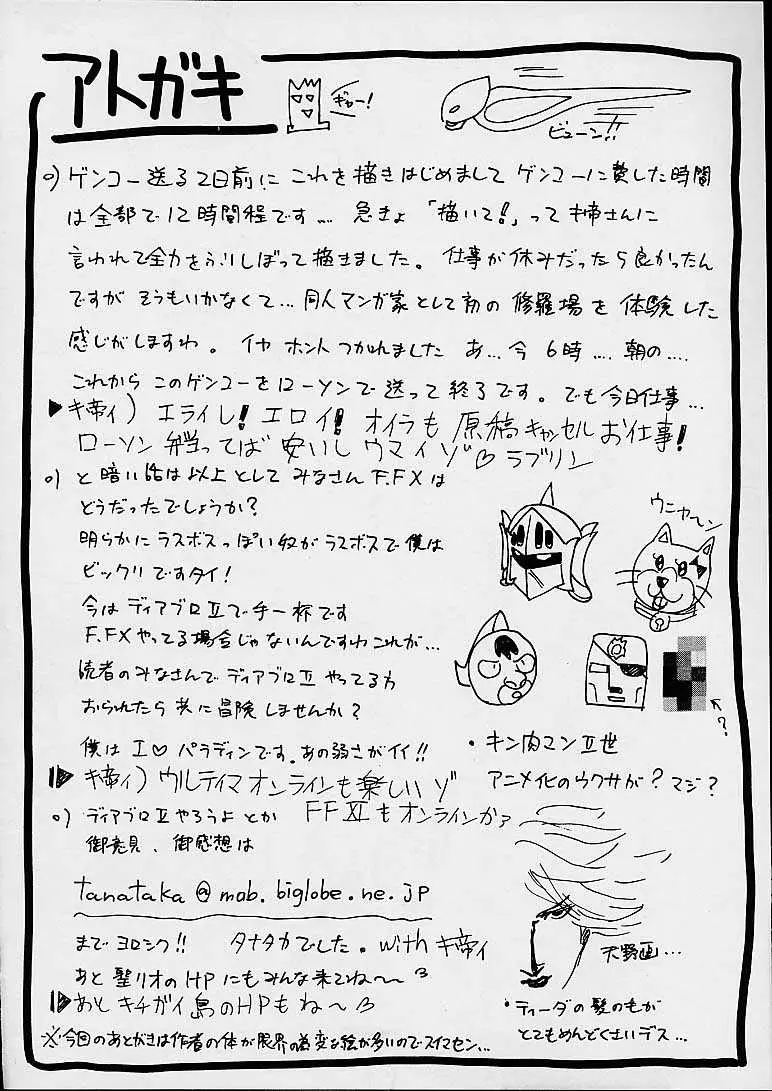 アトガキ
ギャー!
ビューン!!
○)ゲンコー送る2日前にこれを描きはじめましてゲンコーに費した時間
は全部で12時間程です… 急きょ「描いて!」ってキ帝さんに
言われて全力をふりしぼって描きました。仕事が休みだったら良かったん
ですがそうもいかなくて…同人マンガ家として初の修羅場を体験した
感じがしますわ。イヤホントつかれました あ…今6時….朝の….
これからこのゲンコーをローソンで送って終了です。でも今日仕事…
▶キ帝ィ)エライし!エロイ!オイラも原稿キャンセルお仕事!
ローソン弁当ってば安いしウマイゾ♡ラブリン
○)と暗い話は以上としてみなさんF.FXは
どうだったでしょうか?
明らかにラスボスっぽい奴がラスボスで僕は
ビックリですタイ!
今はディアブロⅡで手一杯です
F.FXやってる場合じゃないんですわこれが…
読者のみなさんでディアブロⅡやってる方
おられたら共に冒険しませんか?
僕はI♡パラディンです。あの弱さがイイ!!
▶キ帝ィ)ウルティマオンラインも楽しいゾ
ウニャ〜ン
↖?
・キン肉マンⅡ世
アニメ化のウワサが?マジ?
○)ディアブロⅡやろうよとか FFⅪもオンラインかァ
御意見、御感想は
tanataka@mob.biglobe.ne.jp
までヨロシク!! タナタカでした。withキ帝ィ
あと聖リオのHPにもみんな来てね〜
▶あとキチガイ島のHPもね〜
天野画…
・ティーダの髪のもが
とてもめんどくさいデス…
※今回のあとがきは作者の体が限界の為変な絵が多いのでスイマセン…